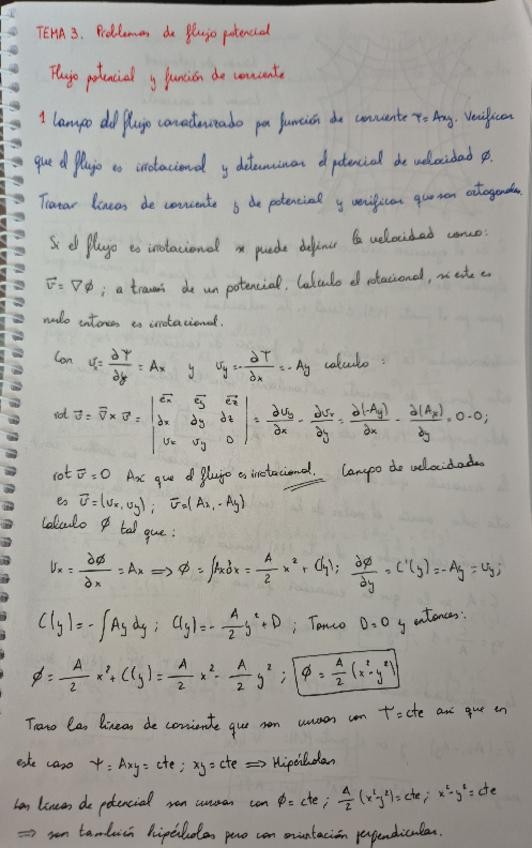 TEMA 3. Problemas de flujo potencial
Flujo potencial y función de corriente
1 Campo del flujo caracterizado por función de corriente Ψ=Axy. Verificar
que el flujo es irrotacional y determinar el potencial de velocidad ϕ.
Trazar líneas de corriente y de potencial y verificar que son ortogonales.
Si el flujo es irrotacional se puede definir la velocidad como:
v̄ = ∇ϕ ; a través de un potencial. Calculo el rotacional, si este es
nulo entonces es irrotacional.
Con vx = ∂Ψ/∂y = Ax y vy = -∂Ψ/∂x = -Ay calculo :
rot v̄ = ∇̄ x v̄ = | ēx ēy ēz ; ∂x ∂y ∂z ; vx vy 0 | = ∂vy/∂x - ∂vx/∂y = ∂(-Ay)/∂x - ∂(Ax)/∂y = 0-0;
rot v̄ = 0 Así que el flujo es irrotacional. Campo de velocidades
es v̄ = (vx, vy) ; v̄ = (Ax, -Ay)
Calculo ϕ tal que :
vx = ∂ϕ/∂x = Ax ⟹ ϕ = ∫Axdx = A/2 x² + C(y); ∂ϕ/∂y = C'(y) = -Ay = vy;
C(y) = -∫Ay dy ; C(y) = - A/2 y² + D ; Tomo D=0 y entonces:
ϕ = A/2 x² + C(y) = A/2 x² - A/2 y² ; ϕ = A/2 (x²-y²)
Trazo las líneas de corriente que son curvas con Ψ = cte así que en
este caso Ψ = Axy = cte ; xy = cte ⟹ Hipérbolas
Las líneas de potencial son curvas con ϕ = cte ; A/2 (x²-y²) = cte ; x²-y² = cte
⟹ son también hipérbolas pero con orientación perpendicular.